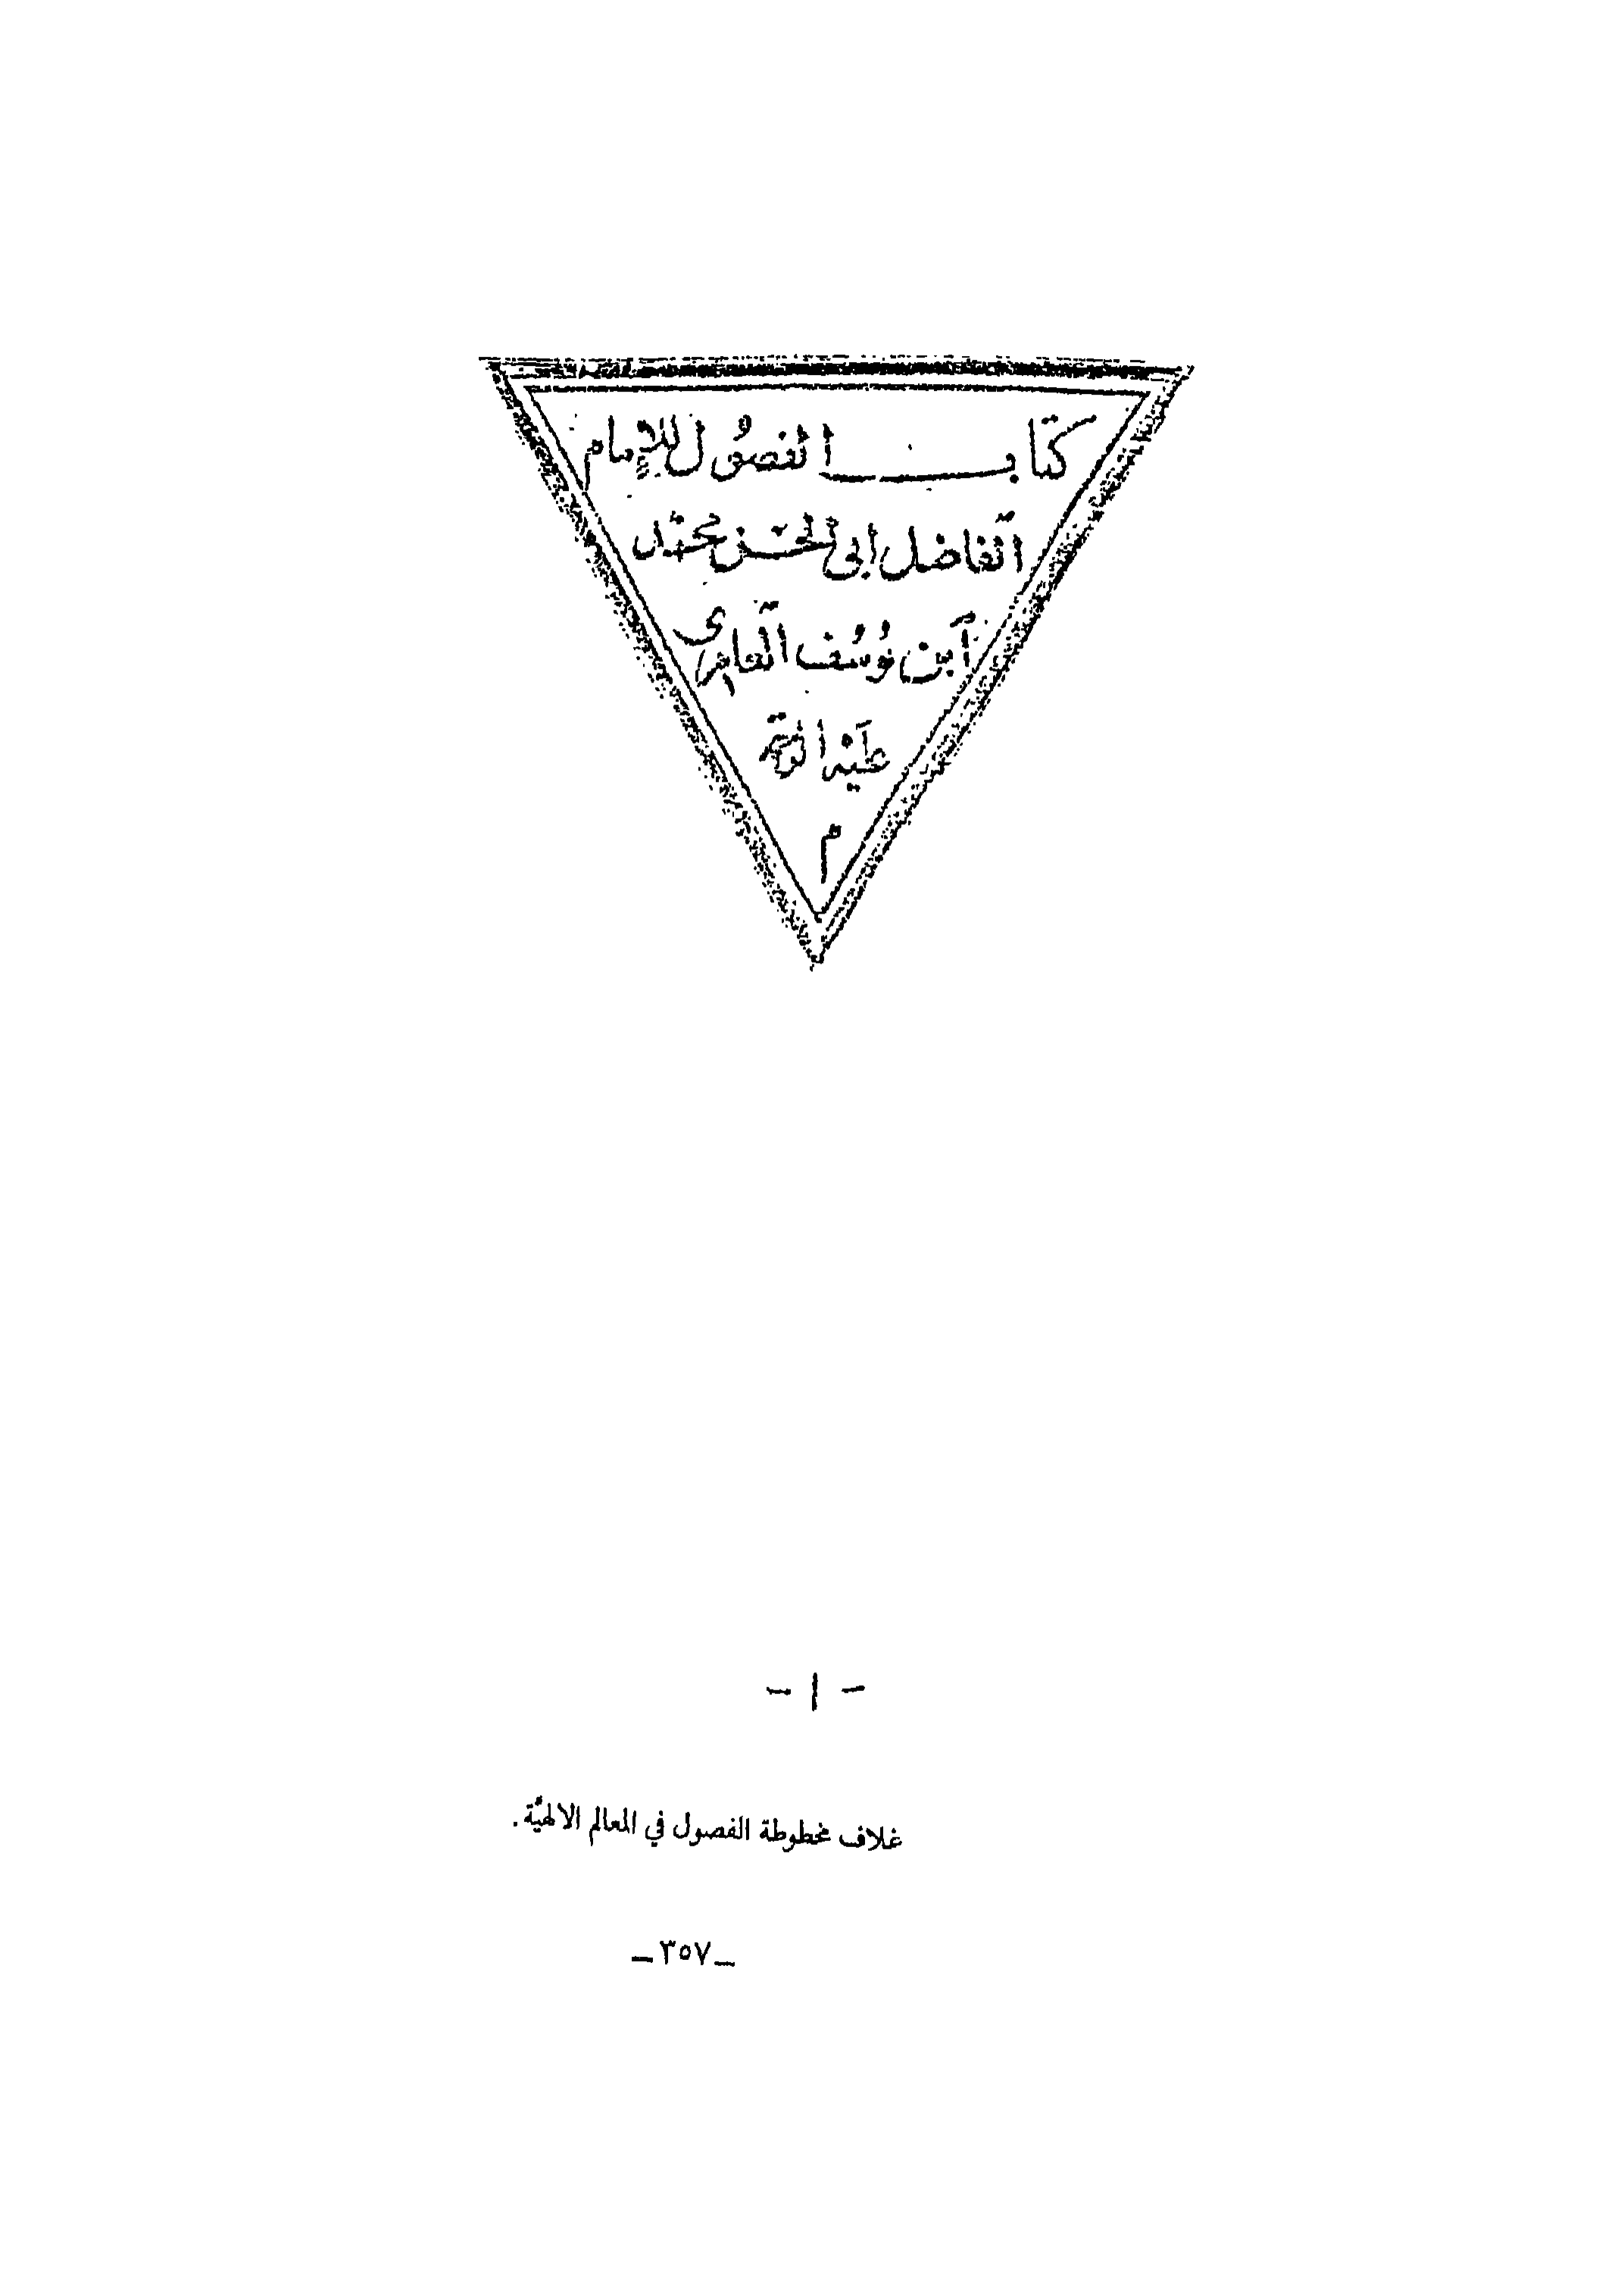 كتاب الفصُول للإمام
الفاضل ابى الحسن محمّد
ابن يُوسُف العامرى
عليه الرحمة
م
- ١ -
غلاف مخطوطة الفصول في المعالم الالهيَّة .
ـ٣٥٧ـ